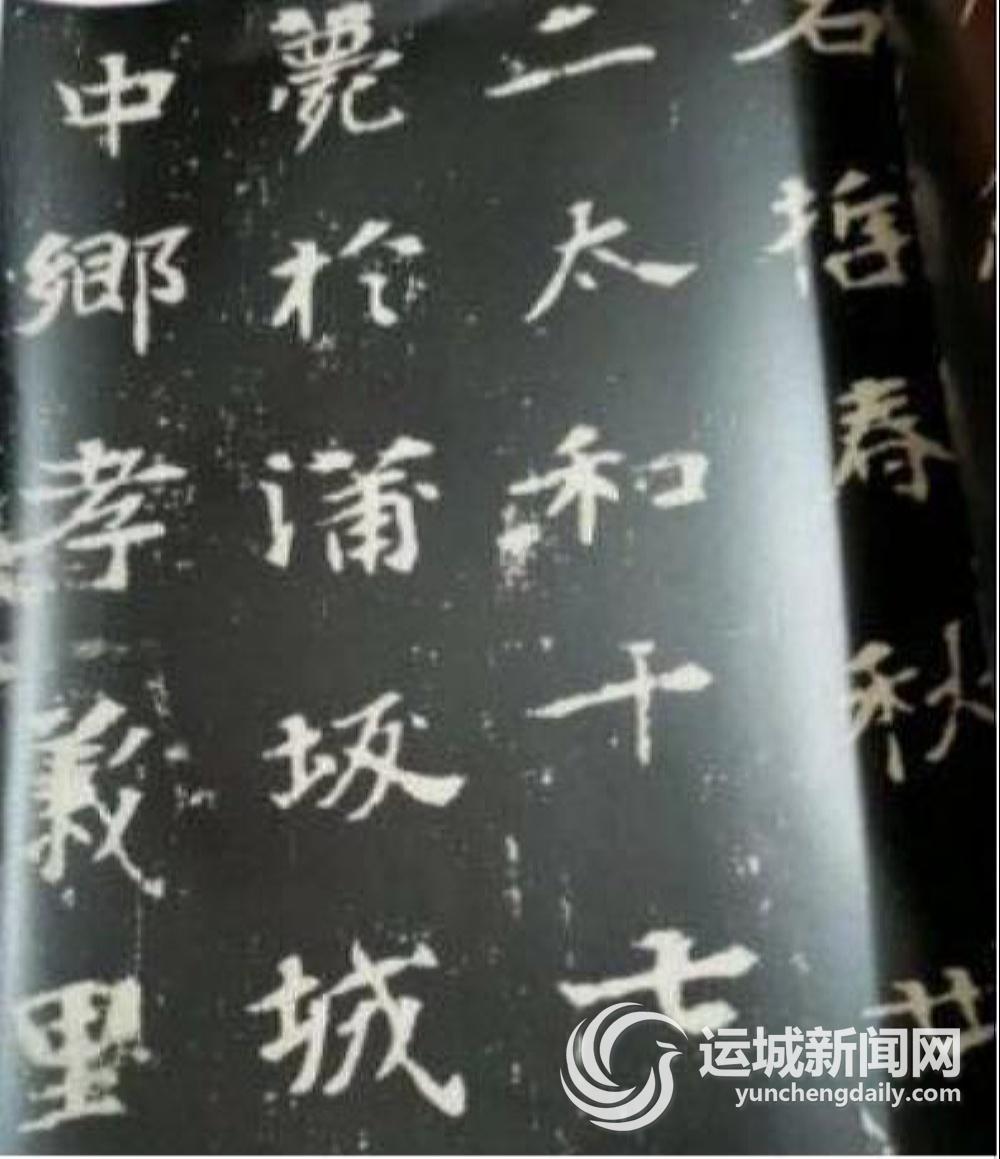 名哲春秋
二太和十七
薨於蒲坂城
中鄉孝義里
运城新闻网
yunchengdaily.com